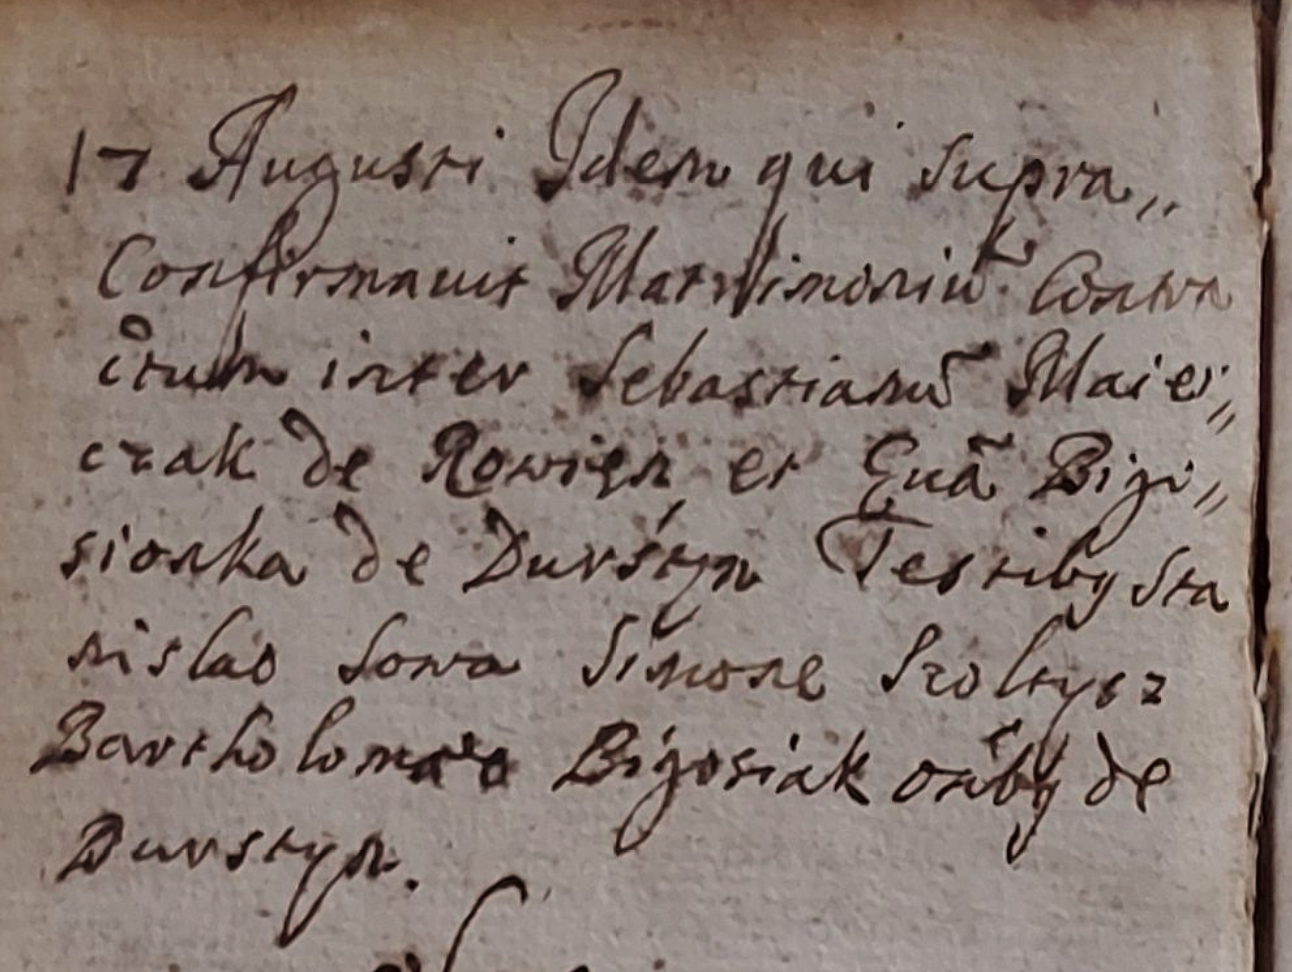 17 Augusti Idem qui supra„
Confirmauit Matrimoniũ Contra
ctum inter Sebastianũ Maier„
czak de Rowień et Euã Bigi„
sionka de Durśtyn Testibq Sta
nislao Sowa Simone Szoltysz
Bartholomæo Bigosiak oñibq de
Durstyn.